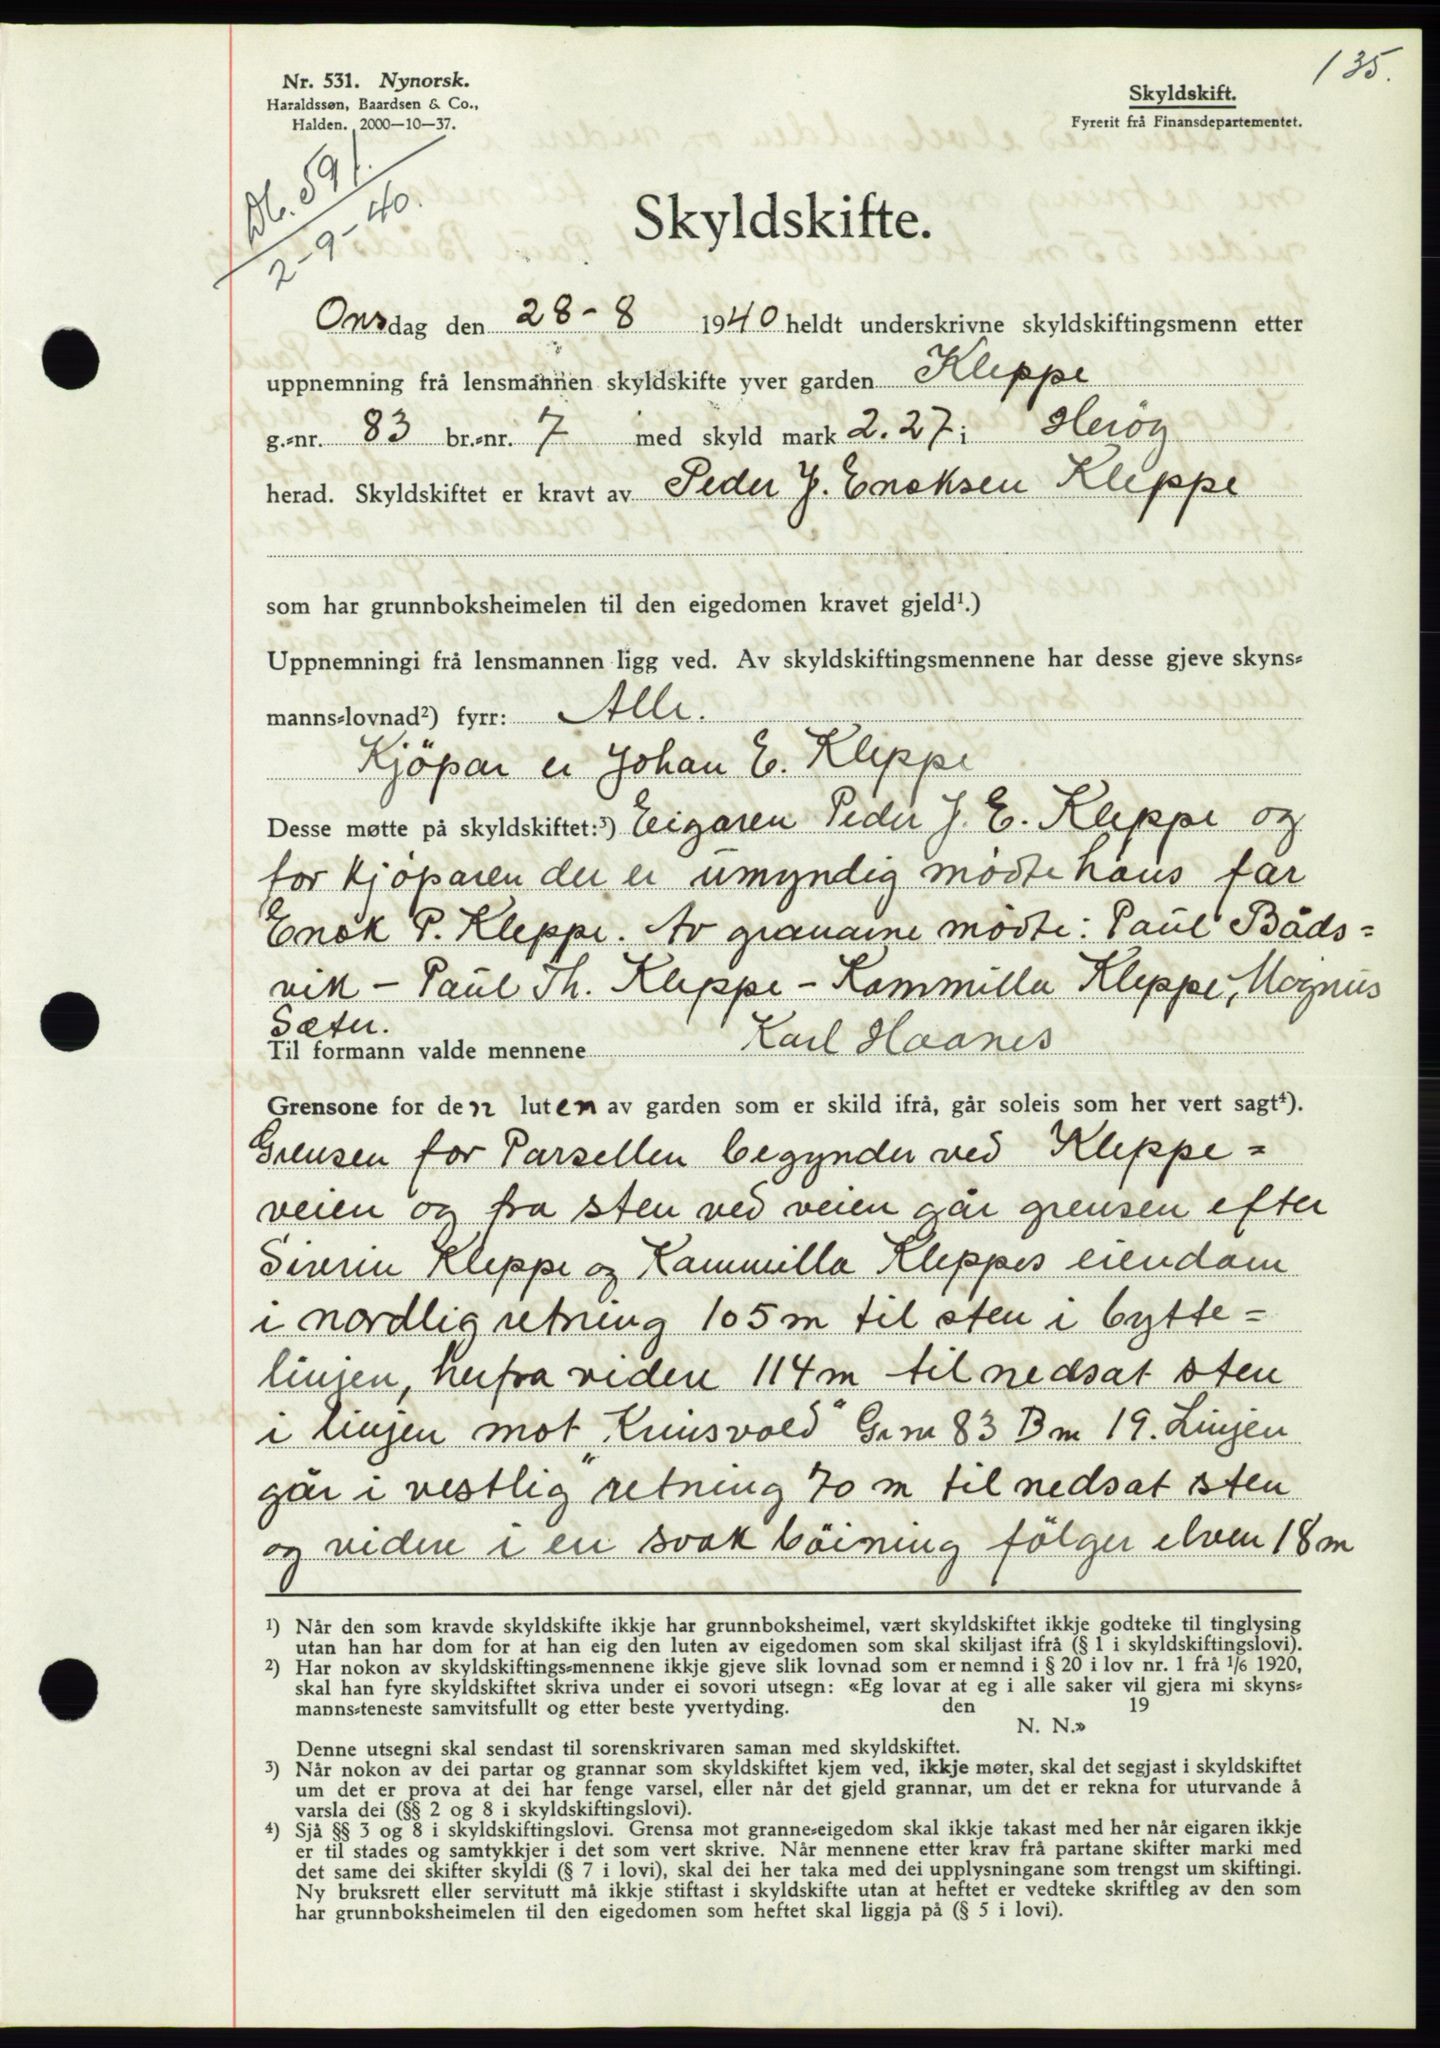 135.
Nr. 531. Nynorsk.
Haraldssøn, Baardsen & Co.,
Halden. 2000—10—37.
Skyldskift.
Fyrerit frå Finansdepartementet.
Db. 591.
2-9-40.
Skyldskifte.
Onsdag den 28-8 1940 heldt underskrivne skyldskiftingsmenn etter
uppnemning frå lensmannen skyldskifte yver garden Kleppe
g.=nr. 83 br.=nr. 7 med skyld mark 2.27 i Herøy
herad. Skyldskiftet er kravt av Peder J. Enoksen Kleppe
som har grunnboksheimelen til den eigedomen kravet gjeld¹.)
Uppnemningi frå lensmannen ligg ved. Av skyldskiftingsmennene har desse gjeve skyns=
manns=lovnad²) fyrr: Alle.
Kjöpar er Johan E. Kleppe
Desse møtte på skyldskiftet:³) Eigaren Peder J. E. Kleppe og
for kjöparen der er umyndig mödte hans far
Enok P. Kleppe. Av granarne mödte: Paul Båds=
vik - Paul Th. Kleppe - Kammilla Kleppe, Magnus
Sæter.
Til formann valde mennene Karl Haanes
Grensone for den luten av garden som er skild ifrå, går soleis som her vert sagt⁴).
Grensen for Parsellen begynder ved Kleppe=
veien og fra sten ved veien går grensen efter
Siverin Kleppe og Kammilla Kleppes eiendom
i nordlig retning 105 m til sten i bytte=
linjen, herfra videre 114 m til nedsat sten
i linjen mot „Kriusvold" Gr nr 83 B nr 19. Linjen
går i vestlig retning 70 m til nedsat sten
og videre i en svak böining fölger elven 18 m
1) Når den som kravde skyldskifte ikkje har grunnboksheimel, vært skyldskiftet ikkje godteke til tinglysing
utan han har dom for at han eig den luten av eigedomen som skal skiljast ifrå (§ 1 i skyldskiftingslovi).
2) Har nokon av skyldskiftings=mennene ikkje gjeve slik lovnad som er nemnd i § 20 i lov nr. 1 frå 1/6 1920,
skal han fyre skyldskiftet skriva under ei sovori utsegn: «Eg lovar at eg i alle saker vil gjera mi skyns=
manns=teneste samvitsfullt og etter beste yvertyding. den 19
N. N.»
Denne utsegni skal sendast til sorenskrivaren saman med skyldskiftet.
3) Når nokon av dei partar og grannar som skyldskiftet kjem ved, ikkje møter, skal det segjast i skyldskiftet
um det er prova at dei har fenge varsel, eller når det gjeld grannar, um det er rekna for uturvande å
varsla dei (§§ 2 og 8 i skyldskiftingslovi).
4) Sjå §§ 3 og 8 i skyldskiftingslovi. Grensa mot granne=eigedom skal ikkje takast med her når eigaren ikkje
er til stades og samtykkjer i det som vert skrive. Når mennene etter krav frå partane skifter marki med
det same dei skifter skyldi (§ 7 i lovi), skal dei her taka med dei upplysningane som trengst um skiftingi.
Ny bruksrett eller servitutt må ikkje stiftast i skyldskifte utan at heftet er vedteke skriftleg av den som
har grunnboksheimelen til den eigedomen som heftet skal liggja på (§ 5 i lovi).